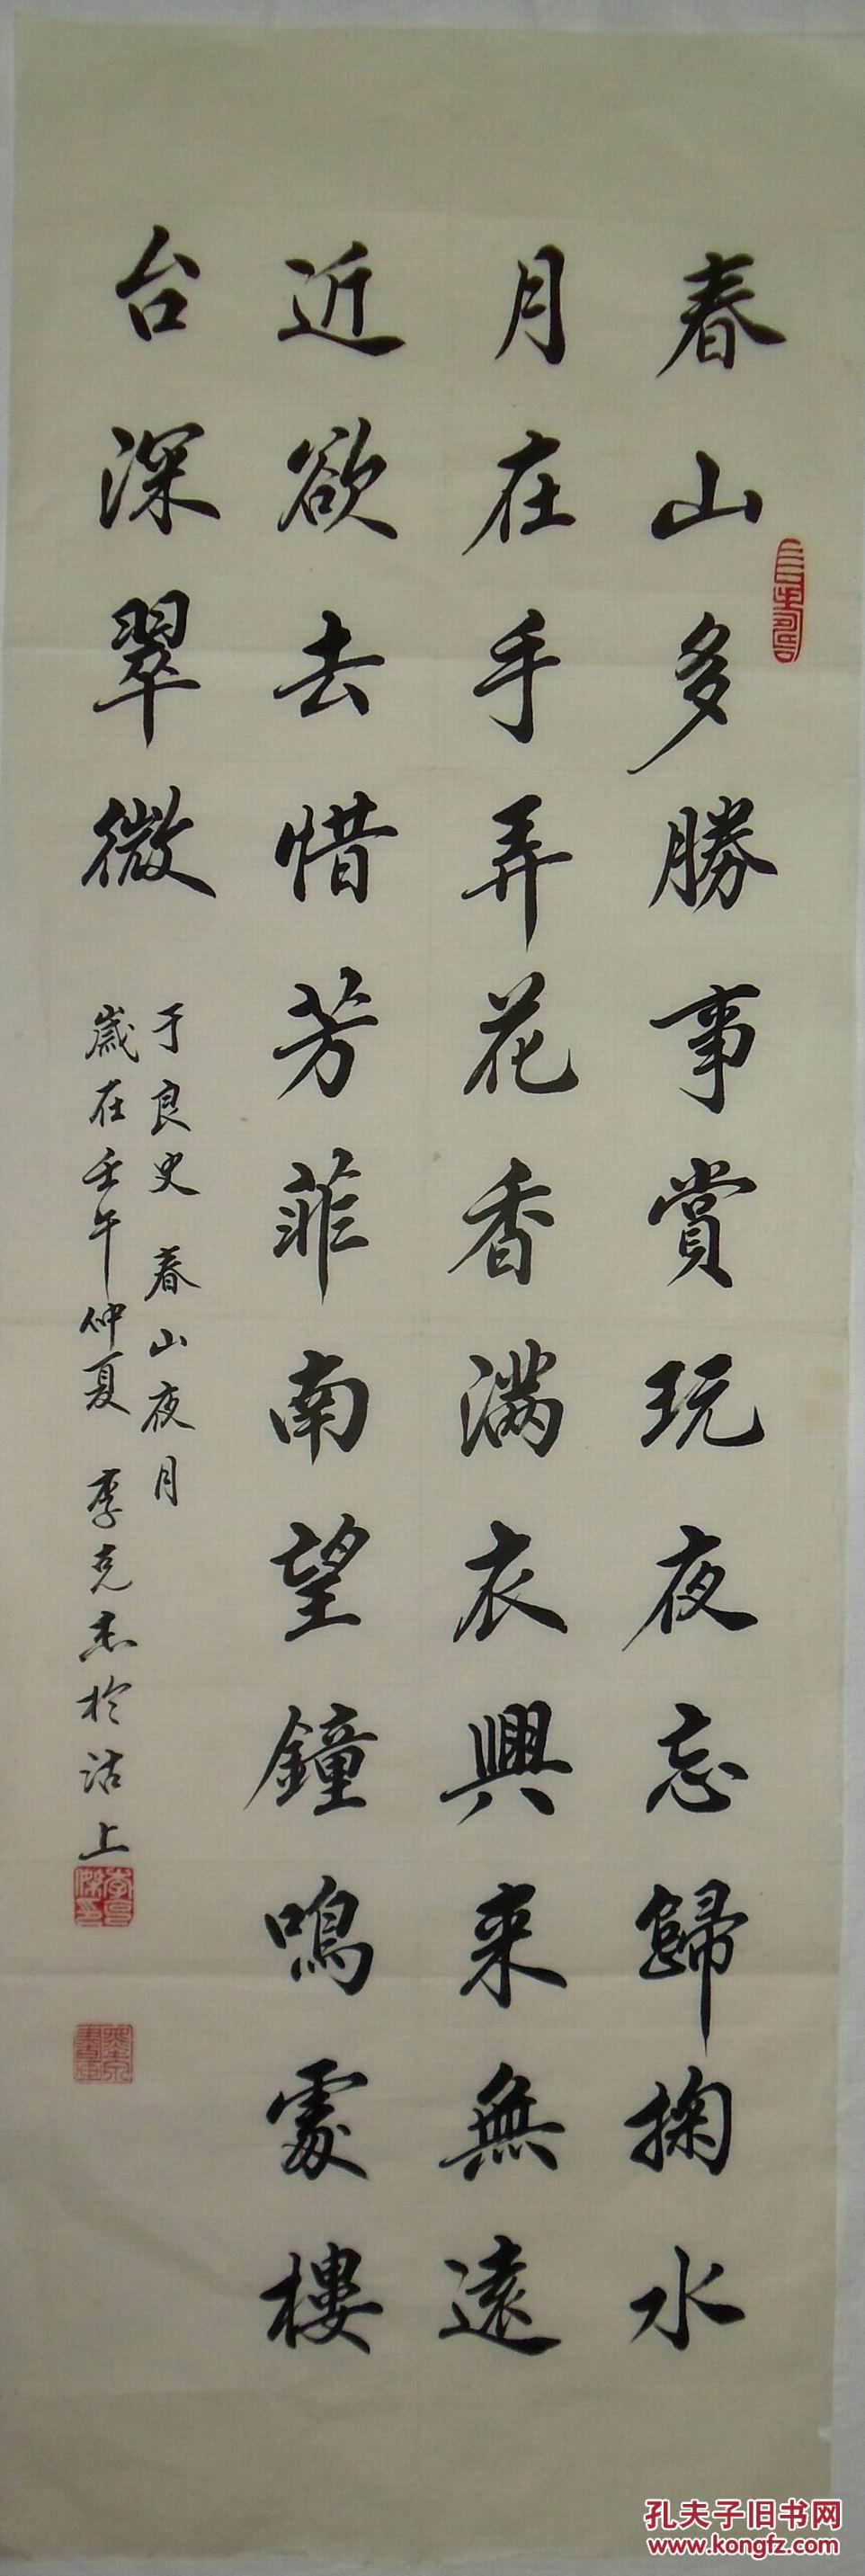 春山多勝事賞玩夜忘歸掬水
月在手弄花香滿衣興来無遠
近欲去惜芳菲南望鐘鳴處樓
台深翠微
于良史 春山夜月
歲在壬午仲夏 李克杰於沽上
孔夫子旧书网
www.kongfz.com